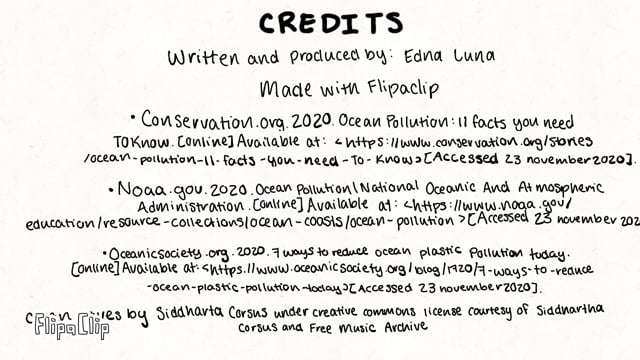 CREDITS
Written and produced by: Edna Luna
Made with Flipaclip
• Conservation.org. 2020. Ocean Pollution: 11 facts you need
TO Know. [online] Available at: <https://www.conservation.org/stories
/ocean-pollution-11-facts-you-need-to-know>[Accessed 23 november 2020].
• Noaa.gov. 2020. Ocean Pollution| National Oceanic And Atmospheric
Administration. [online] Available at: <https://www.noaa.gov/
education/resource-collections/ocean-coasts/ocean-pollution>[Accessed 23 november 202
• Oceanicsociety.org. 2020. 7 ways to reduce ocean plastic Pollution today.
[online] Available at: <https://www.oceanicsociety.org/blog/1720/7-ways-to-reduce
-ocean-plastic-pollution-today>[Accessed 23 november 2020].
by Siddharta Corsus under creative commons license courtesy of Siddhartha
Corsus and Free Music Archive
FlipaClip